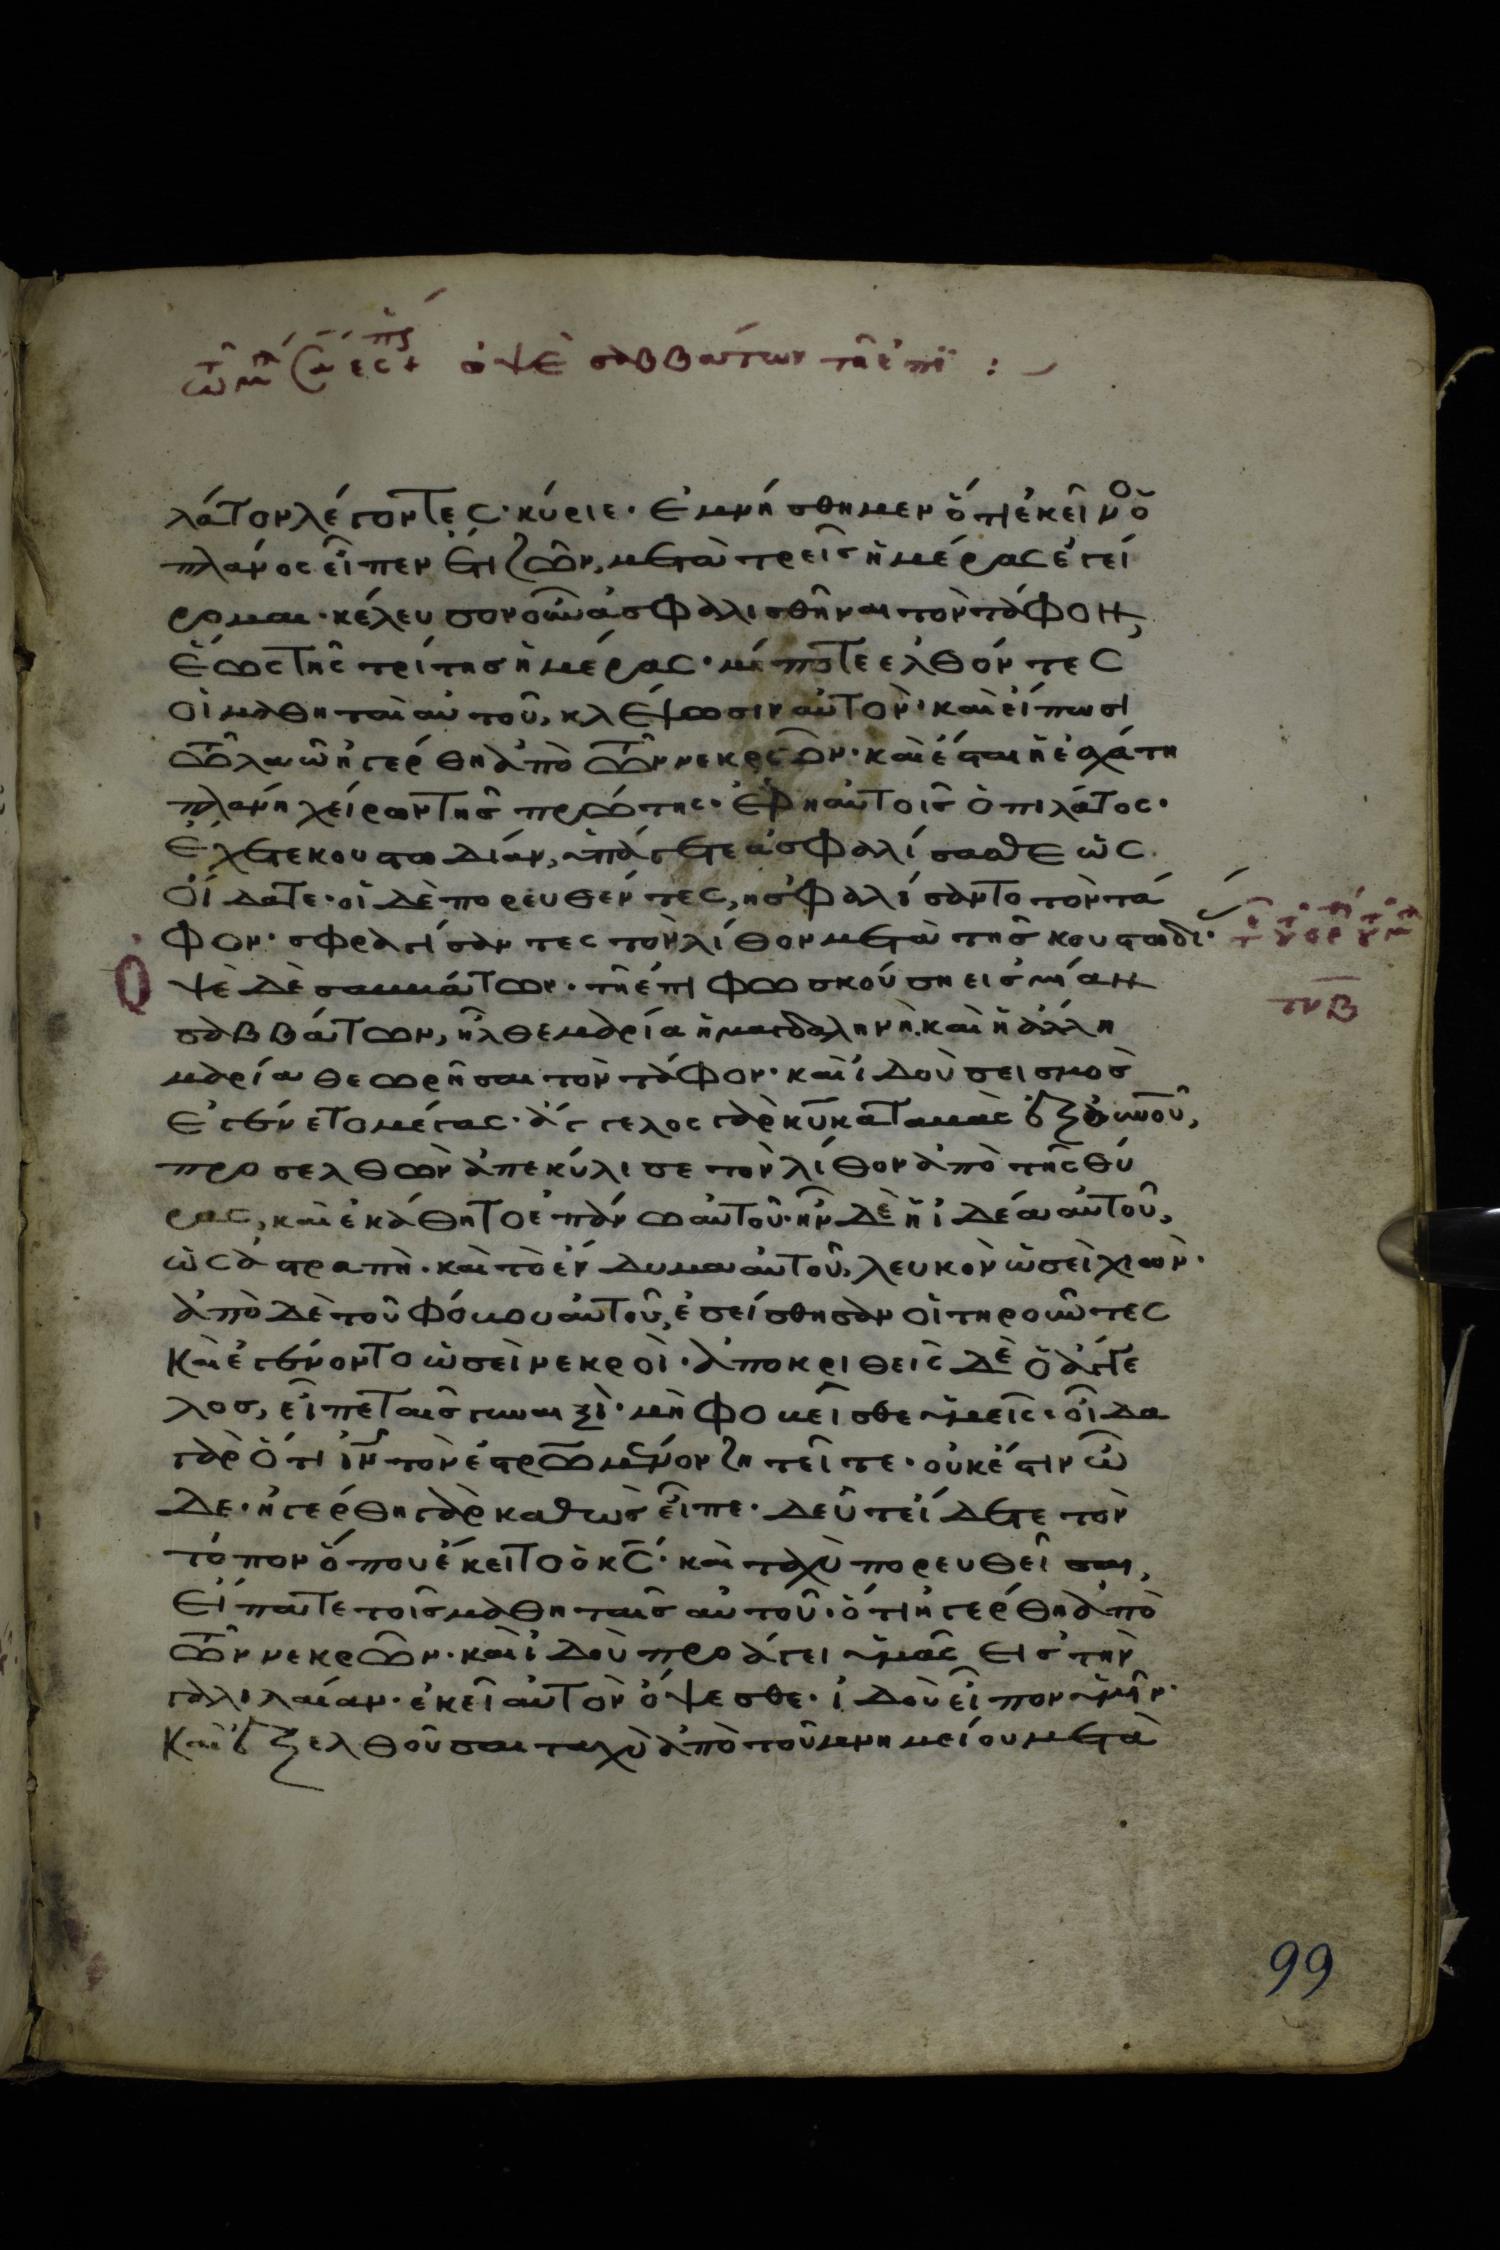 ὀψὲ σαββάτων τῆ ἐπι :
λάτον λέγοντες· κύριε· ἐμνήσθημεν ὅτι ἐκεῖνος ὁ
πλάνος εἶπεν ἔτι ζῶν, μετὰ τρεῖς ἡμέρας ἐγεί
ρομαι· κέλευσον οὖν ἀσφαλισθῆναι τὸν τάφον,
ἕως τῆς τρίτης ἡμέρας· μήποτε ἐλθόντες
οἱ μαθηταὶ αὐτοῦ, κλέψωσιν αὐτὸν· καὶ εἴπωσι
τῶ λαῶ ἠγέρθη ἀπὸ τῶν νεκρῶν· καὶ ἔσται ἡ ἐσχάτη
πλάνη χείρων τῆς πρώτης· ἔφη αὐτοῖς ὁ πιλάτος·
ἔχετε κουστωδίαν, ὑπάγετε ἀσφαλίσασθε ὡς
οἴδατε· οἱ δὲ πορευθέντες, ἠσφαλίσαντο τὸν τά
φον· σφραγίσαντες τὸν λίθον μετὰ τῆς κουστωδί·
Ὀψὲ δὲ σαββάτων· τῆ ἐπιφωσκούση εἰς μίαν
σαββάτων, ἦλθε μαρία ἡ μαγδαληνὴ. καὶ ἡ ἄλλη
μαρία θεωρῆσαι τὸν τάφον· καὶ ἰδοὺ σεισμὸς
ἐγένετο μέγας· ἄγγελος γὰρ κυ καταβὰς ἐξ οὐνοῦ,
προσελθὼν ἀπεκύλισε τὸν λίθον ἀπὸ τῆς θύ
ρας, καὶ ἐκάθητο ἐπάνω αὐτοῦ· ἦν δὲ ἡ ἰδέα αὐτοῦ,
ὡς ἀστραπὴ· καὶ τὸ ἔνδυμα αὐτοῦ, λευκὸν ὡσεὶ χιὼν·
ἀπὸ δὲ τοῦ φόβου αὐτοῦ, ἐσείσθησαν οἱ τηροῦντες
καὶ ἐγένοντο ὡσεὶ νεκροὶ· ἀποκριθεὶς δὲ ὁ ἄγγε
λος, εἶπε ταῖς γυναιξὶ· μὴ φοβεῖσθε ὑμεῖς· οἶδα
γὰρ ὅτι ιν τὸν ἐστρωμένον ζητεῖτε· οὐκ ἔστιν ὧ
δε· ἠγέρθη γὰρ καθὼς εἶπε· δεῦτε ἴδετε τὸν
τόπον ὅπου ἔκειτο ὁ κς· καὶ ταχὺ πορευθεῖσαι,
εἴπατε τοῖς μαθηταῖς αὐτοῦ· ὅτι ἠγέρθη ἀπὸ
τῶν νεκρῶν· καὶ ἰδοὺ προάγει ὑμᾶς εἰς τὴν
γαλιλαίαν· ἐκεῖ αὐτὸν ὄψεσθε· ἰδοὺ εἶπον ὑμῖν·
καὶ ἐξελθοῦσαι ταχὺ ἀπὸ τοῦ μνημείου μετὰ
τνβ
99